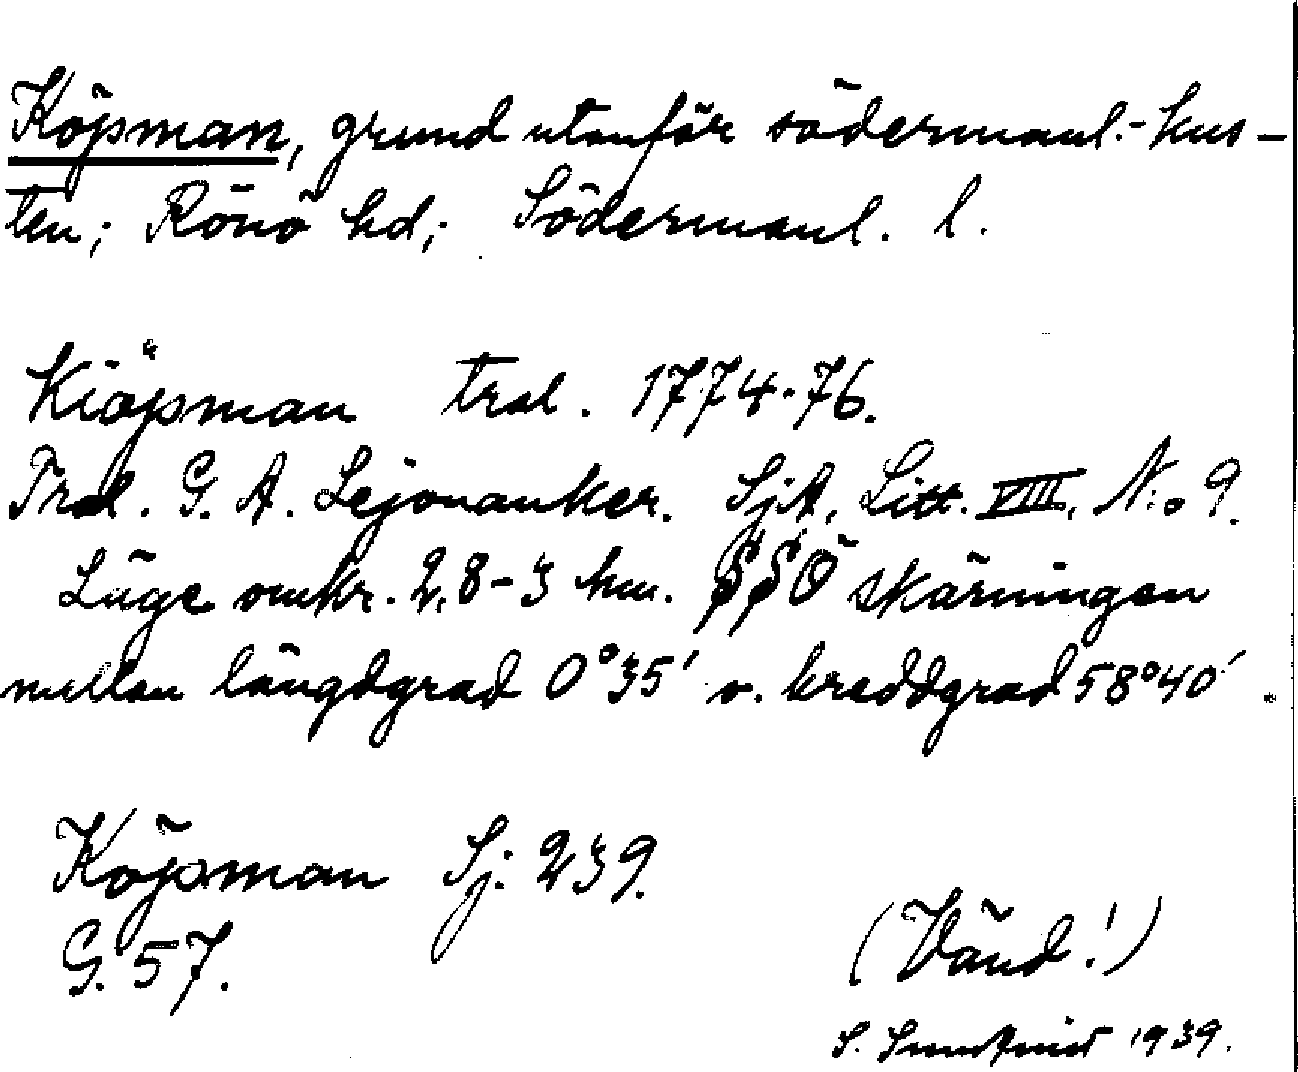 Köpman, grund utanför södermanl.-kus-
ten; Rönö hd; Södermanl. l.
Kiöpman tral. 1774-76.
Tral. G. A. Lejonanker. SjA, Litt. VIII, N:o 9.
Läge omkr. 2,8-3 km. SSO skärningen
mellan längdgrad 0°35' o. breddgrad 58°40'.
Köpman Sj. 239.
G. 57.
(Vänd!)
S. 1939.